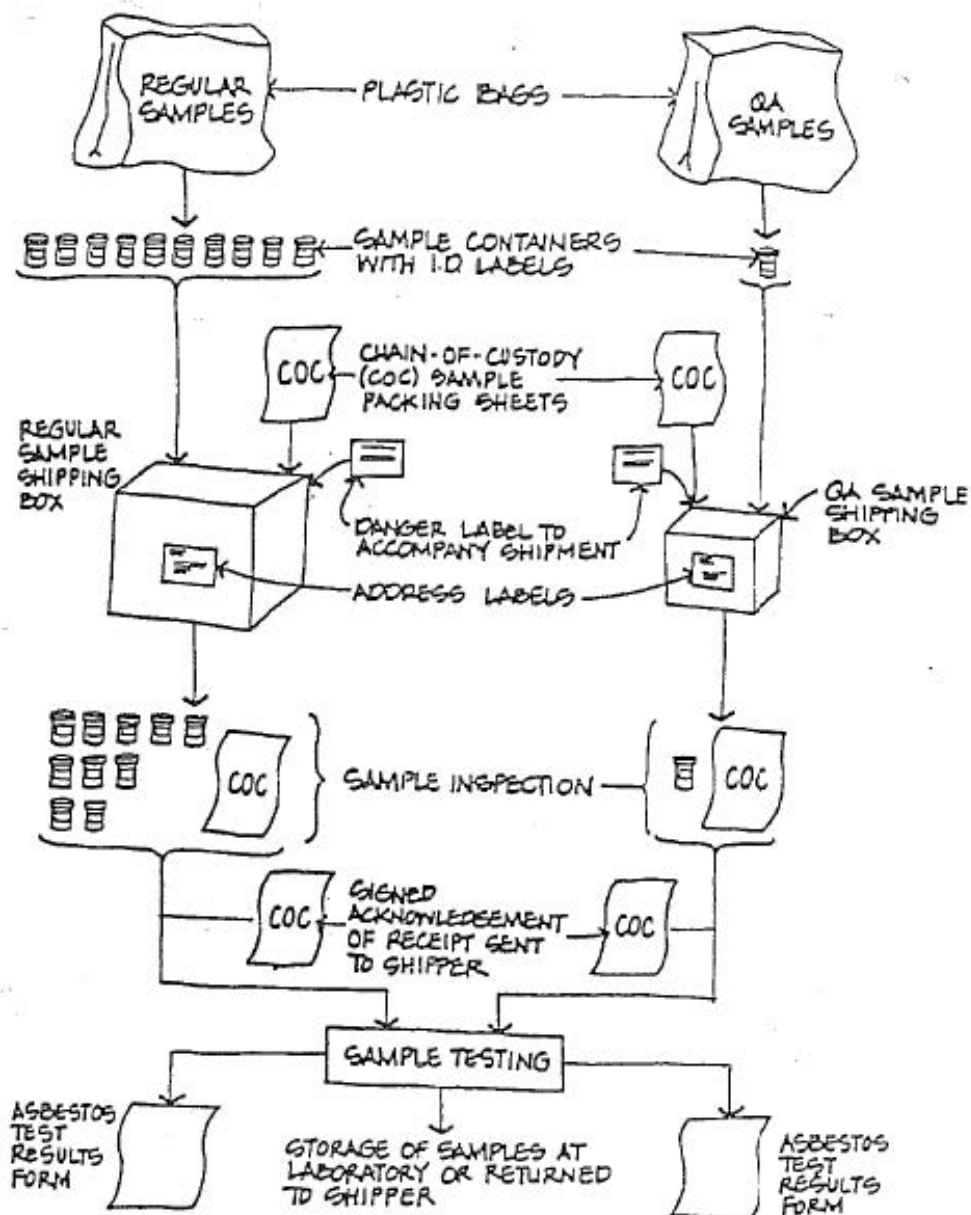 REGULAR
SAMPLES
PLASTIC BAGS
QA
SAMPLES
SAMPLE CONTAINERS
WITH I.D. LABELS
COC
CHAIN-OF-CUSTODY
(COC) SAMPLE
PACKING SHEETS
COC
REGULAR
SAMPLE
SHIPPING
BOX
DANGER LABEL TO
ACCOMPANY SHIPMENT
QA SAMPLE
SHIPPING
BOX
ADDRESS LABELS
COC
SAMPLE INSPECTION
COC
COC
SIGNED
ACKNOWLEDGEMENT
OF RECEIPT SENT
TO SHIPPER
COC
SAMPLE TESTING
ASBESTOS
TEST
RESULTS
FORM
STORAGE OF SAMPLES AT
LABORATORY OR RETURNED
TO SHIPPER
ASBESTOS
TEST
RESULTS
FORM